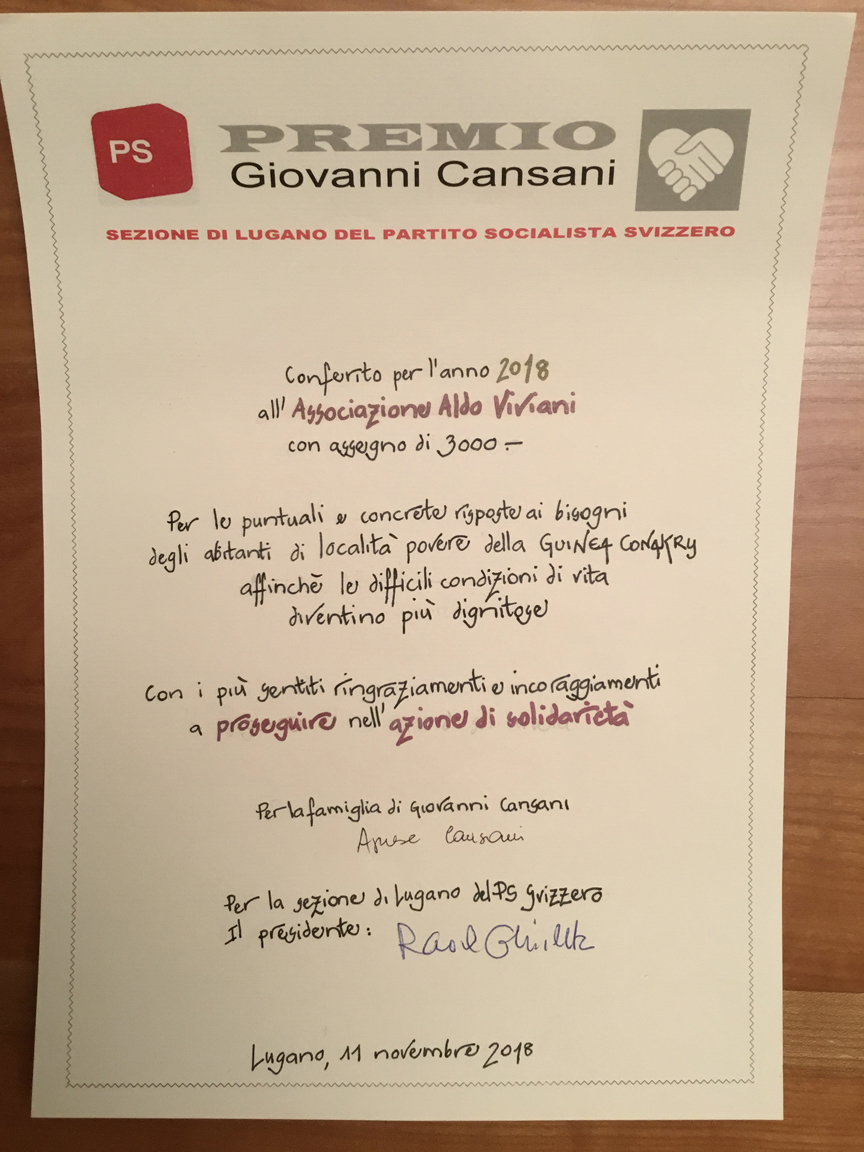 PS
PREMIO
Giovanni Cansani
SEZIONE DI LUGANO DEL PARTITO SOCIALISTA SVIZZERO
Conferito per l'anno 2018
all'Associazione Aldo Viviani
con assegno di 3000.–
Per le puntuali e concrete risposte ai bisogni
degli abitanti di località povere della GUINEA CONAKRY
affinchè le difficili condizioni di vita
diventino più dignitose
Con i più sentiti ringraziamenti e incoraggiamenti
a proseguire nell'azione di solidarietà
Per la famiglia di Giovanni Cansani
Cansani
Per la sezione di Lugano del PS Svizzero
Il presidente: Raoul
Lugano, 11 novembre 2018